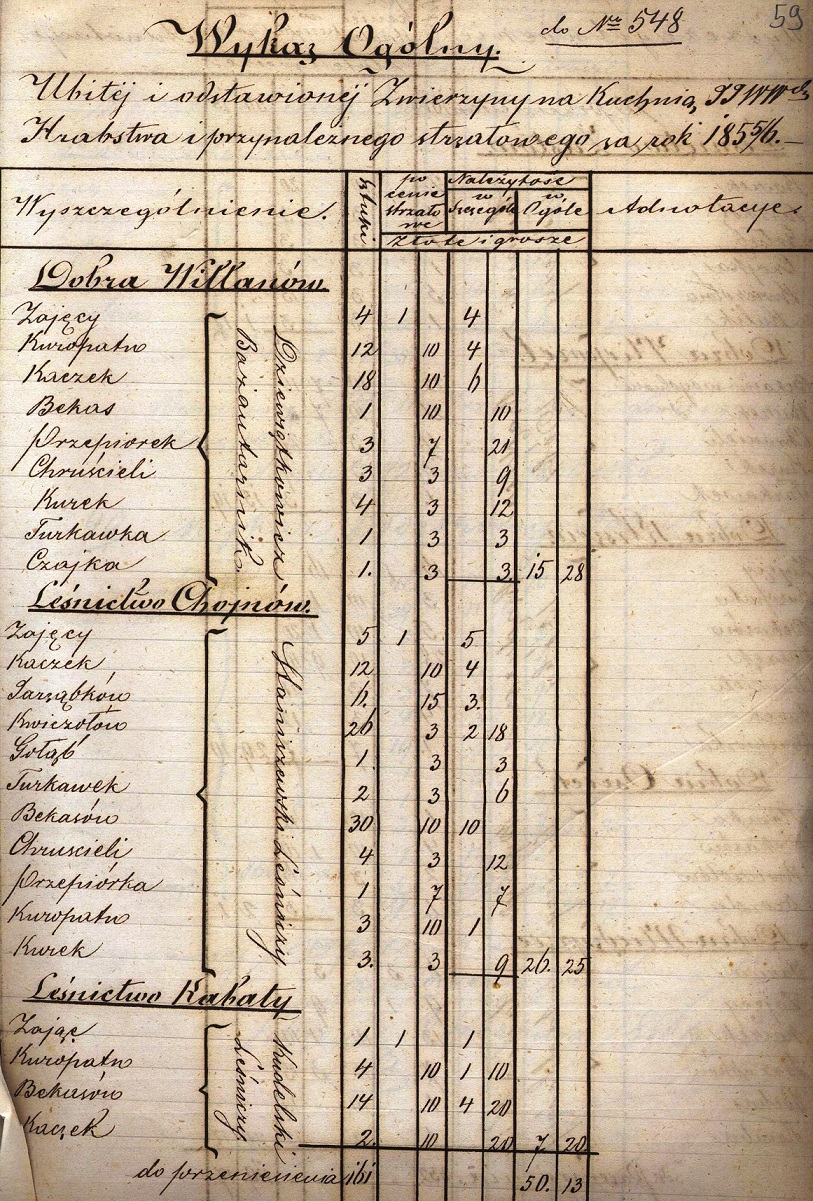 59
do № 548
Wykaz Ogólny.
Ubitéj i odstawionéj Zwierzyny na Kuchnią JJWW
Hrabstwa i przynależnego strzałowego za rok 1855/6.
Wyszczególnienie. Sztuki po cenie strzałowe Należytość w szczególe w Ogóle Adnotacye.
Złote i grosze
Dobra Willanów.
Dziewiątkowicz Bażantarnik.
Zajęcy 4 1 4
Kuropatw 12 10 4
Kaczek 18 10 6
Bekas 1 10 10
Przepiorek 3 7 21
Chruścieli 3 3 9
Kurek 4 3 12
Turkawka 1 3 3
Czajka 1. 3 3. 15 28
Leśnictwo Chojnów.
Staniszewski Leśniczy.
Zajęcy 5 1 5
Kaczek 12 10 4
Jarząbków 6. 15 3.
Kwiczołów 26 3 2 18
Gołąb 1. 3 3
Turkawek 2 3 6
Bekasów 30 10 10
Chruscieli 4 3 12
Przepiórka 1 7 7
Kuropatw 3 10 1
Kurek 3. 3 9 26. 25
Leśnictwo Kabaty
Kudelski Leśniczy.
Zając 1 1 1
Kuropatw 4 10 1 10
Bekasów 14 10 4 20
Kaczek 2 10 20 7 20
do przeniesienia 161 50. 13